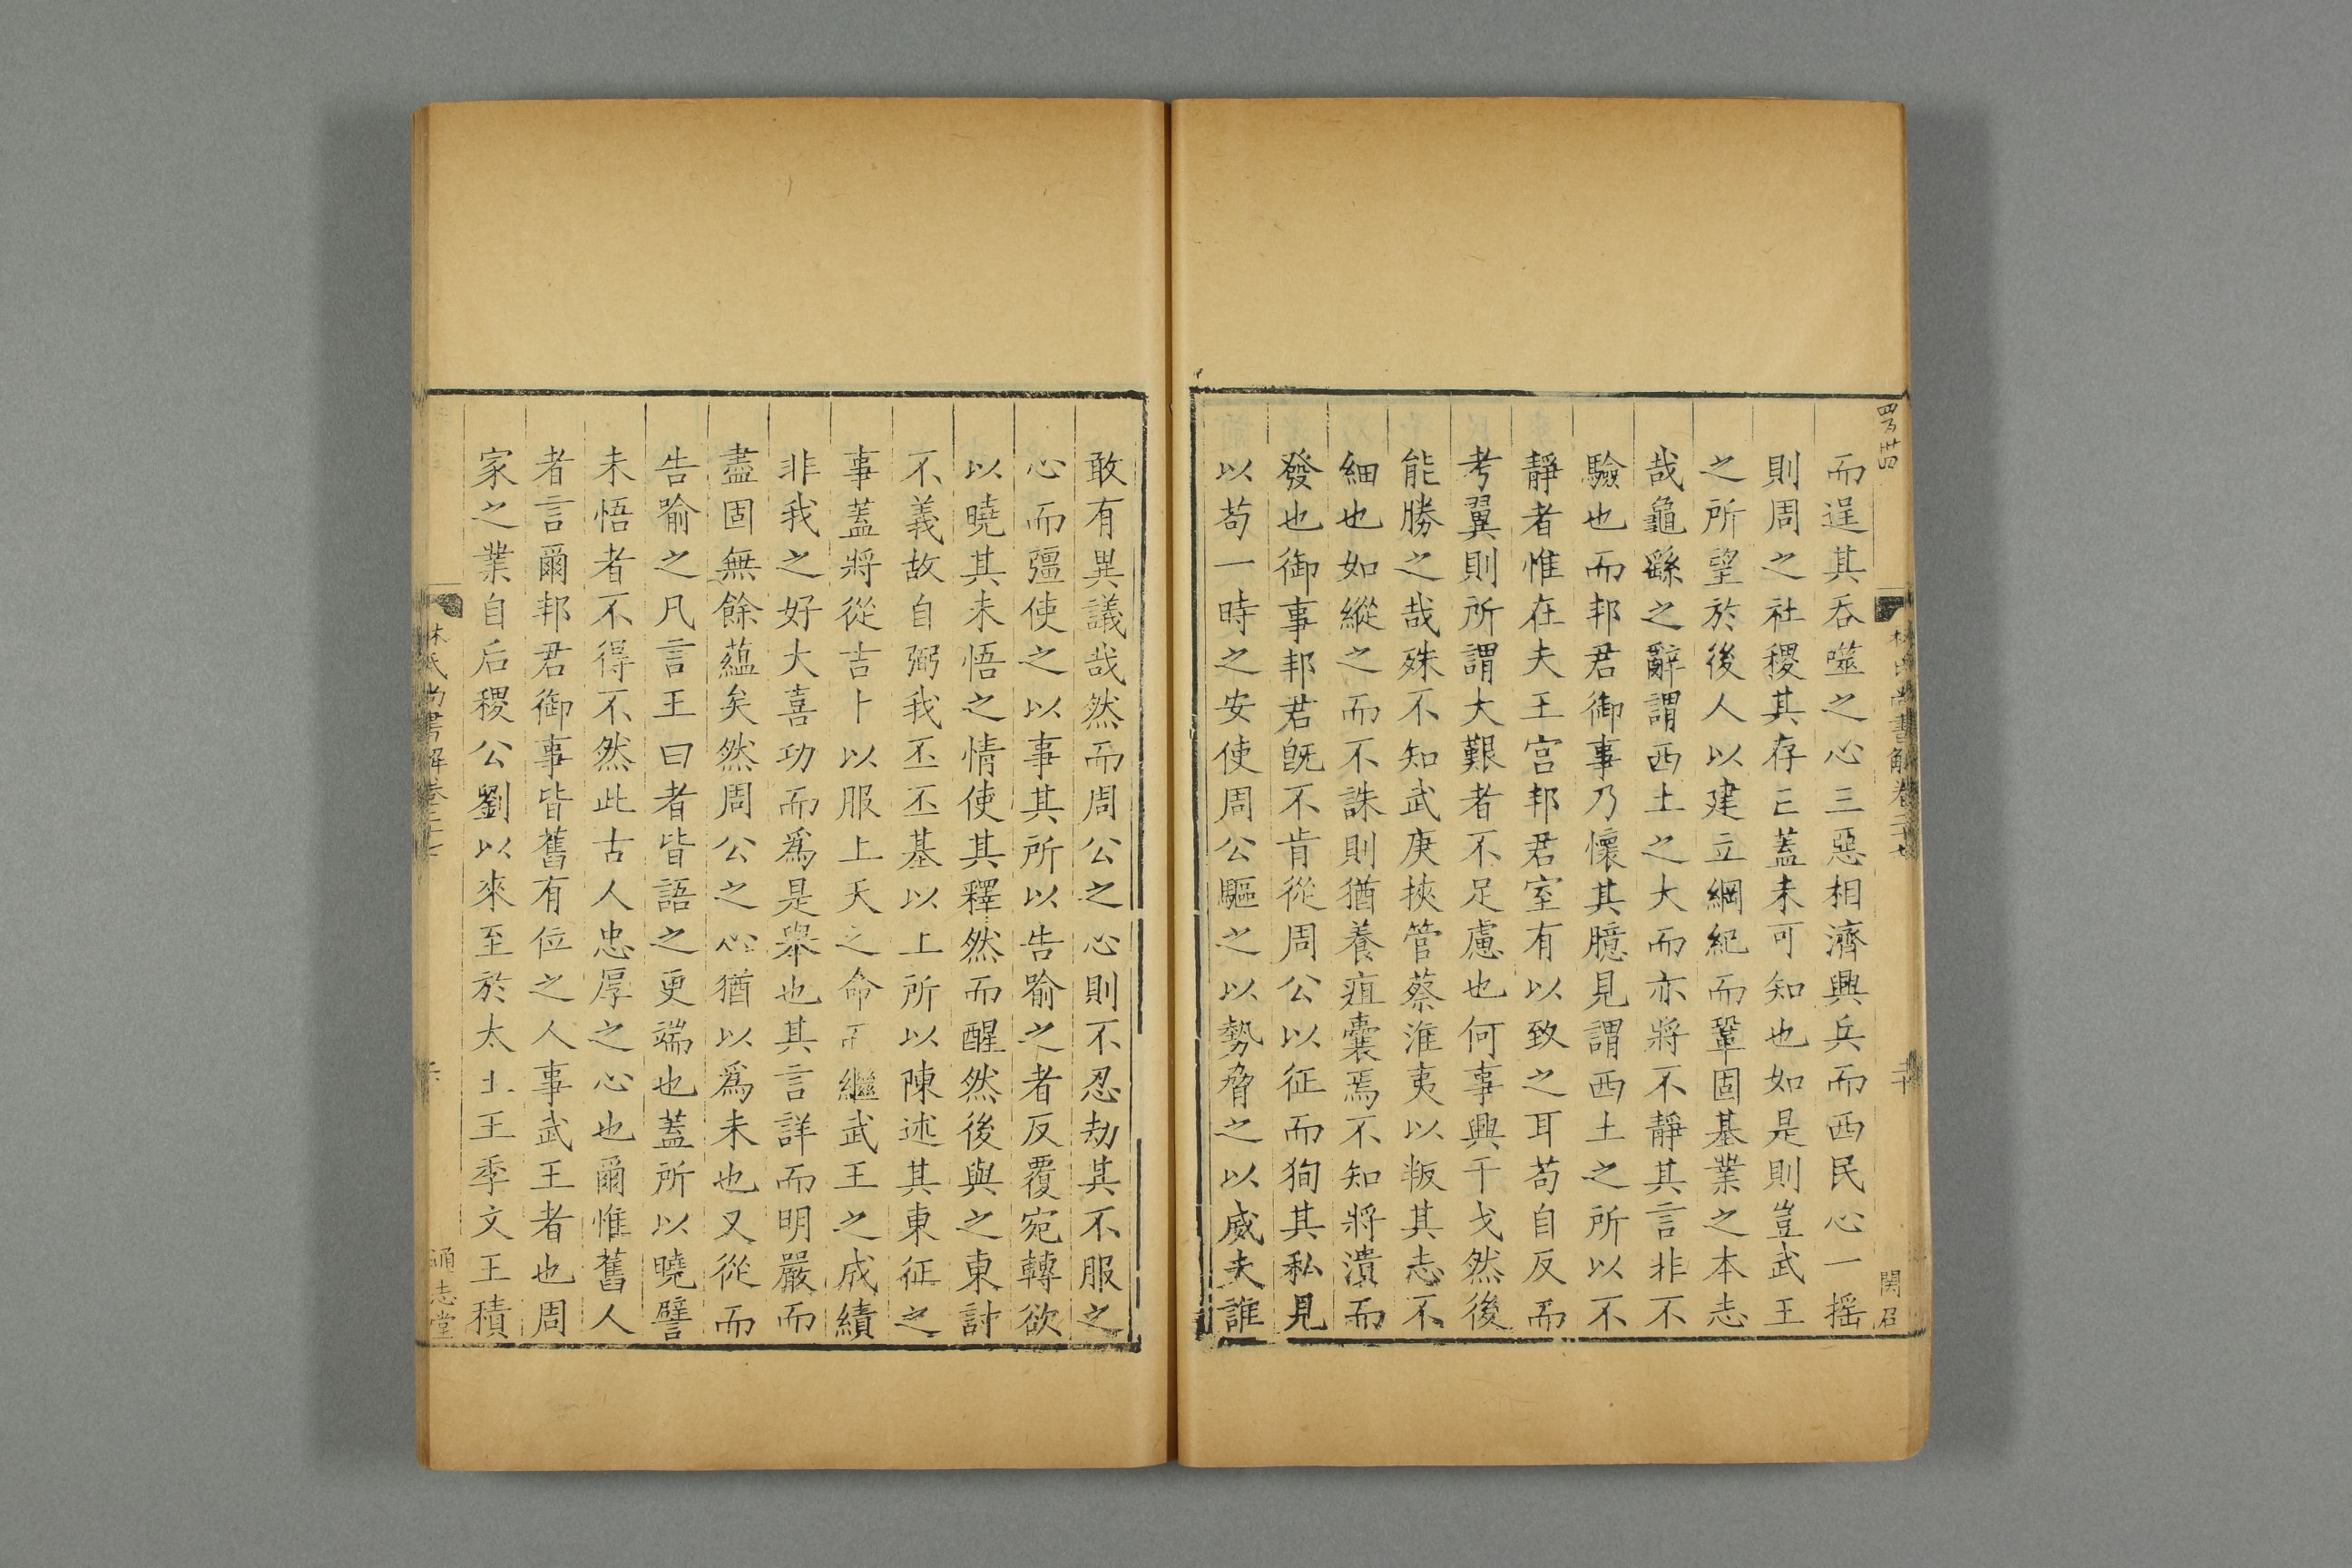 而逞其吞噬之心三惡相濟興兵而西民心一揺
則周之社稷其存亡蓋未可知也如是則豈武王
之所望於後人以建立綱紀而鞏固基業之本志
哉龜繇之辭謂西土之大而亦將不靜其言非不
驗也而邦君御事乃懷其臆見謂西土之所以不
靜者惟在夫王宫邦君室有以致之耳苟自反而
考翼則所謂大艱者不足慮也何事興干戈然後
能勝之哉殊不知武庚挾管蔡淮夷以叛其志不
細也如縱之而不誅則猶養疽囊焉不知將潰而
發也御事邦君既不肯從周公以征而狥其私見
以苟一時之安使周公驅之以勢脅之以威夫誰
敢有異議哉然而周公之心則不忍劫其不服之
心而彊使之以事其所以告喻之者反覆宛轉欲
以曉其未悟之情使其釋然而醒然後與之東討
不義故自弼我丕丕基以上所以陳述其東征之
事蓋將從吉卜以服上天之命而繼武王之成績
非我之好大喜功而爲是舉也其言詳而明嚴而
盡固無餘蘊矣然周公之心猶以爲未也又從而
告喻之凡言王曰者皆語之更端也蓋所以曉譬
未悟者不得不然此古人忠厚之心也爾惟舊人
者言爾邦君御事皆舊有位之人事武王者也周
家之業自后稷公劉以來至於太王王季文王積
林氏尚書解卷二十七
通志堂